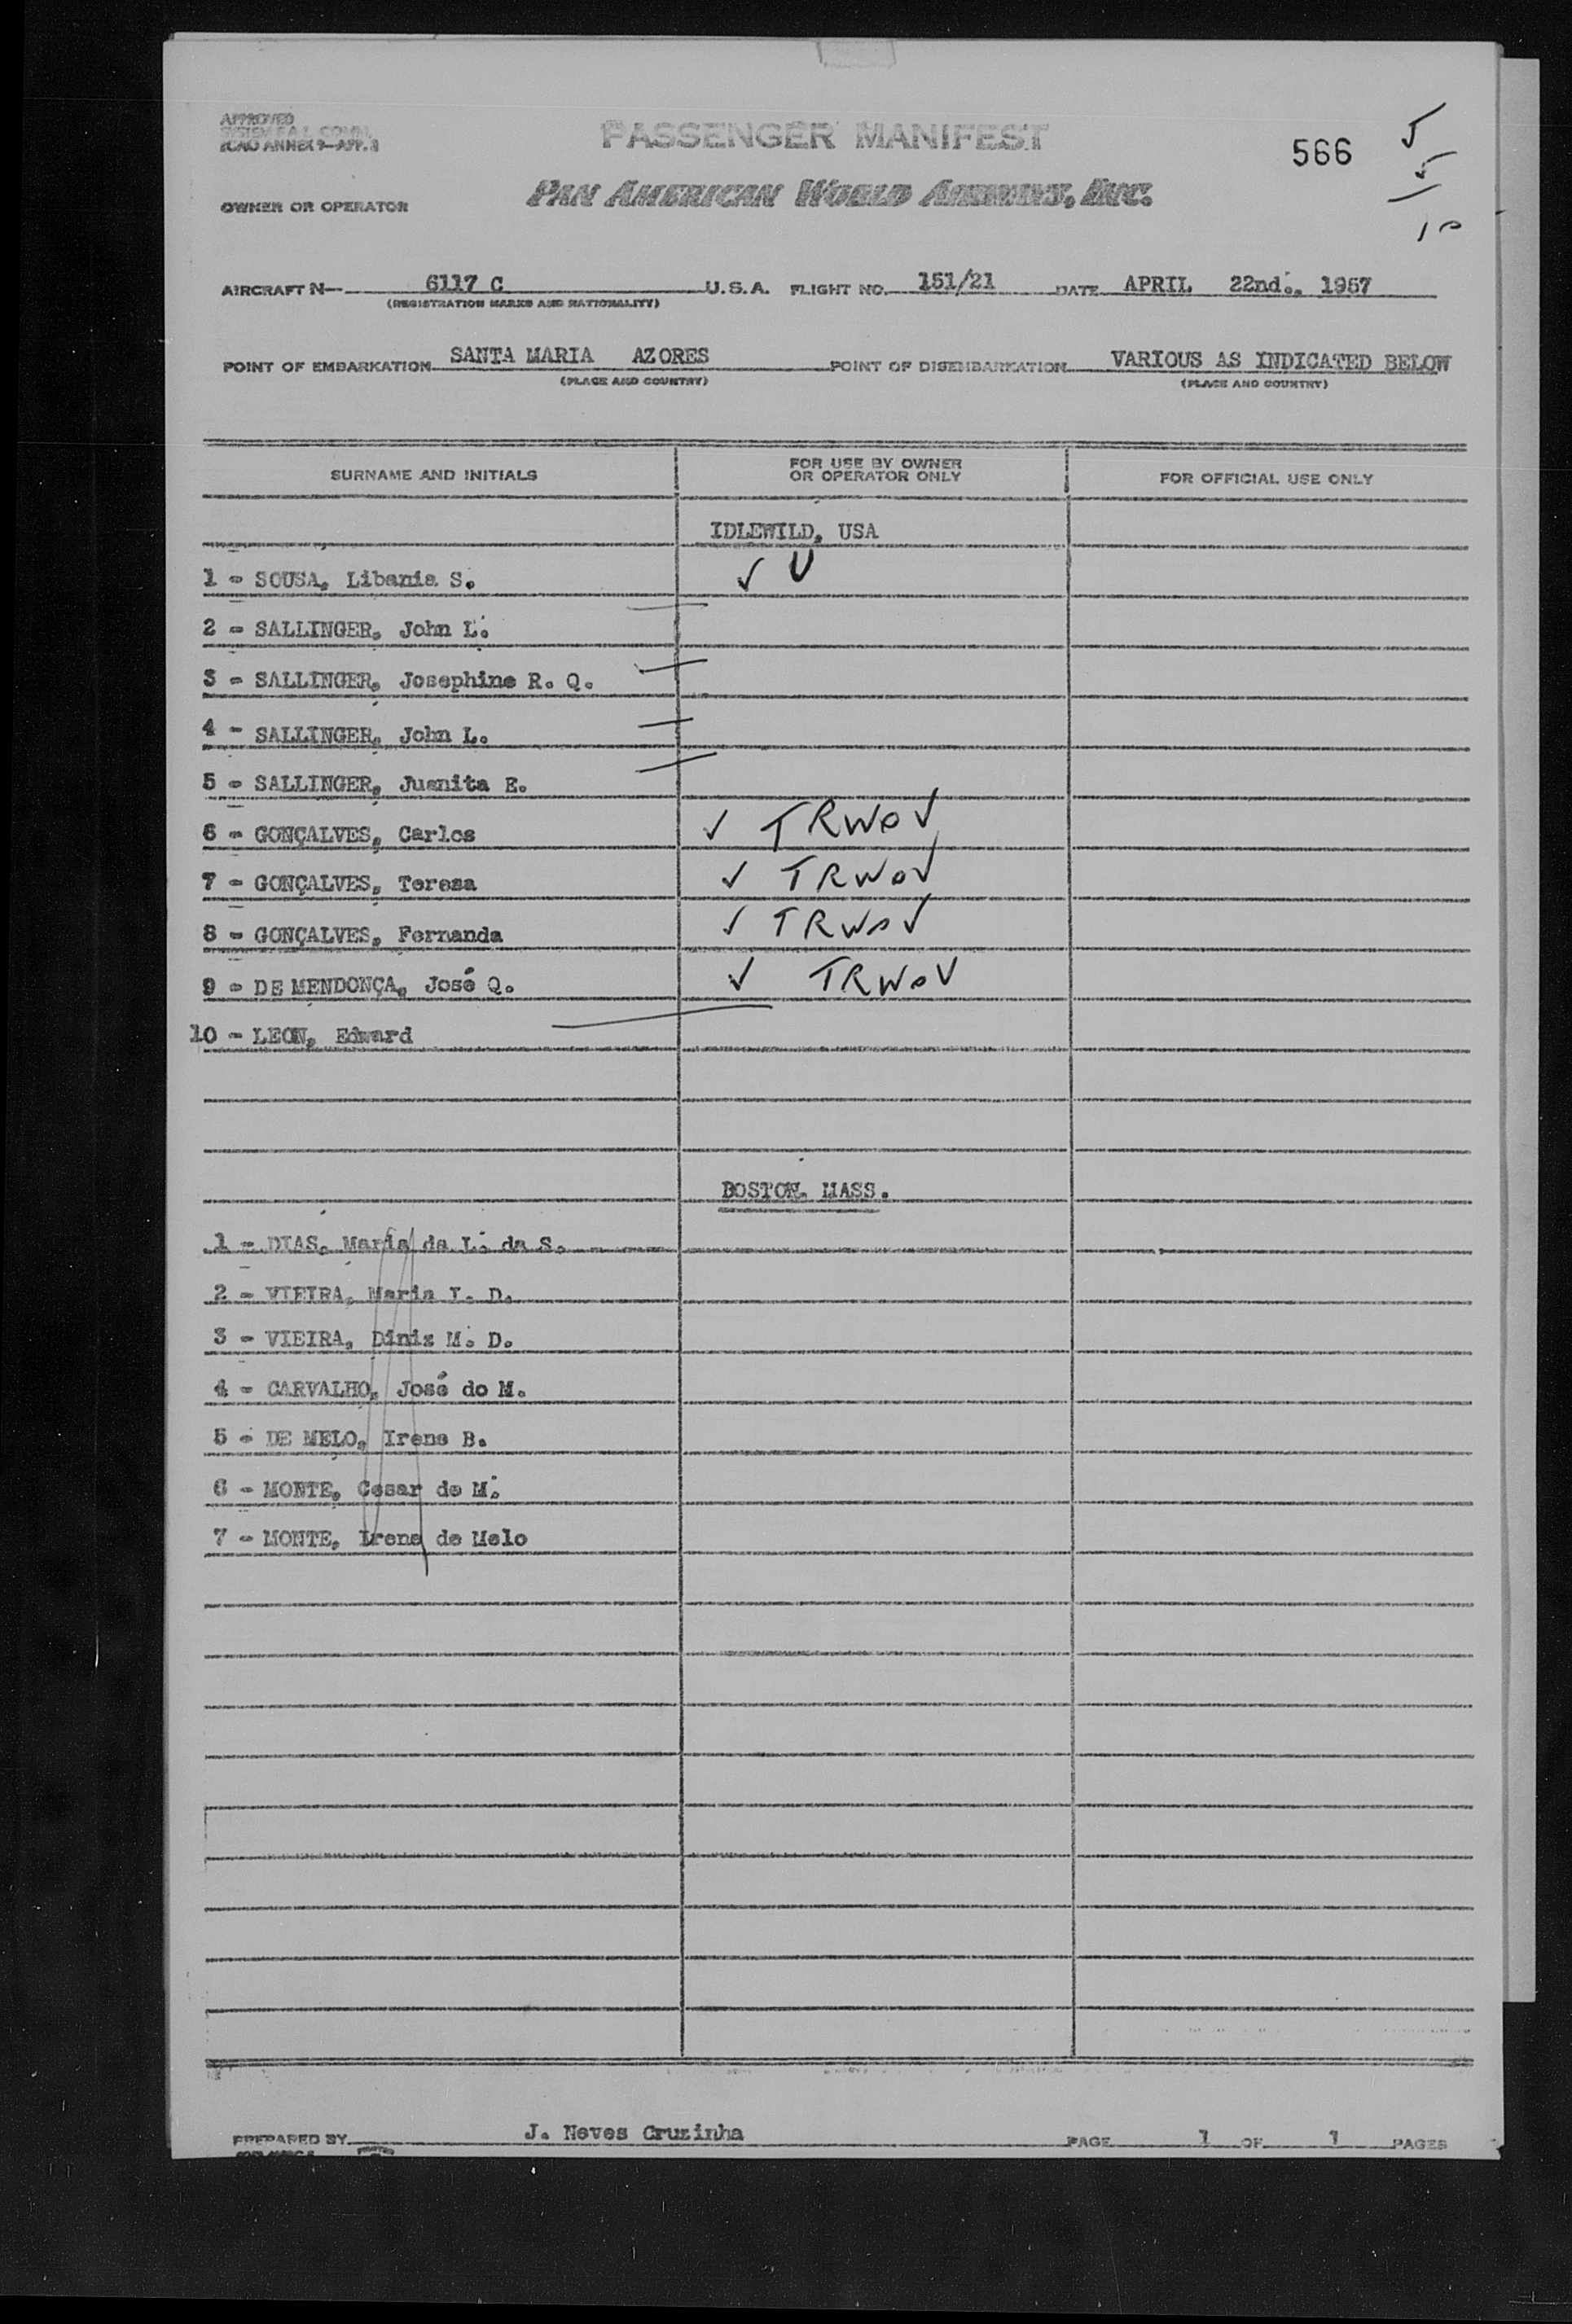 APPROVED
SYSTEM F.A.L. COMM.
ICAO ANNEX 9-APP. 3
PASSENGER MANIFEST
566
5
5
10
OWNER OR OPERATOR
PAN AMERICAN WORLD AIRWAYS, INC.
AIRCRAFT N- 6117 C U.S.A. FLIGHT NO. 151/21 DATE APRIL 22nd., 1957
(REGISTRATION MARKS AND NATIONALITY)
POINT OF EMBARKATION SANTA MARIA AZORES POINT OF DISEMBARKATION VARIOUS AS INDICATED BELOW
(PLACE AND COUNTRY) (PLACE AND COUNTRY)
SURNAME AND INITIALS FOR USE BY OWNER OR OPERATOR ONLY FOR OFFICIAL USE ONLY
IDLEWILD, USA
1 - SOUSA, Libania S. ✓ U
2 - SALLINGER, John L.
3 - SALLINGER, Josephine R. Q.
4 - SALLINGER, John L.
5 - SALLINGER, Juanita E.
6 - GONÇALVES, Carlos ✓ TRWOV
7 - GONÇALVES, Teresa ✓ TRWOV
8 - GONÇALVES, Fernanda ✓ TRWOV
9 - DE MENDONÇA, José Q. ✓ TRWOV
10 - LEON, Edward
BOSTON, MASS.
1 - DIAS, Maria da L. da S.
2 - VIEIRA, Maria I. D.
3 - VIEIRA, Diniz M. D.
4 - CARVALHO, José do M.
5 - DE MELO, Irene B.
6 - MONTE, Cesar de M.
7 - MONTE, Irene de Melo
PREPARED BY J. Neves Cruzinha PAGE 1 OF 1 PAGES